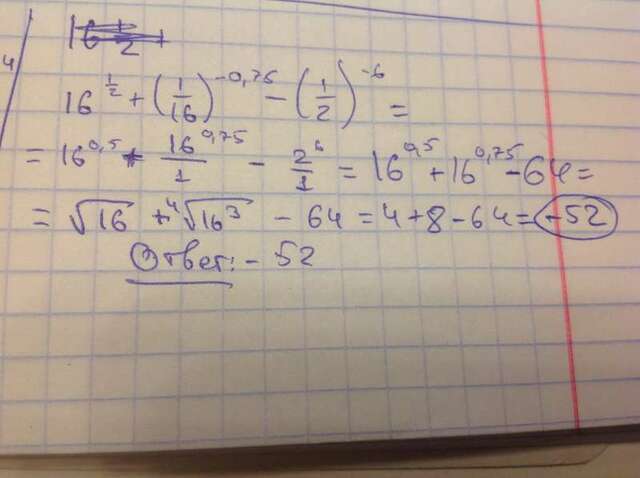 4
16^{\frac{1}{2}} + (\frac{1}{16})^{-0,75} - (\frac{1}{2})^{-6} =
= 16^{0,5} + \frac{16^{0,75}}{1} - \frac{2^6}{1} = 16^{0,5} + 16^{0,75} - 64 =
= \sqrt{16} + \sqrt[4]{16^3} - 64 = 4 + 8 - 64 = -52
Ответ: - 52